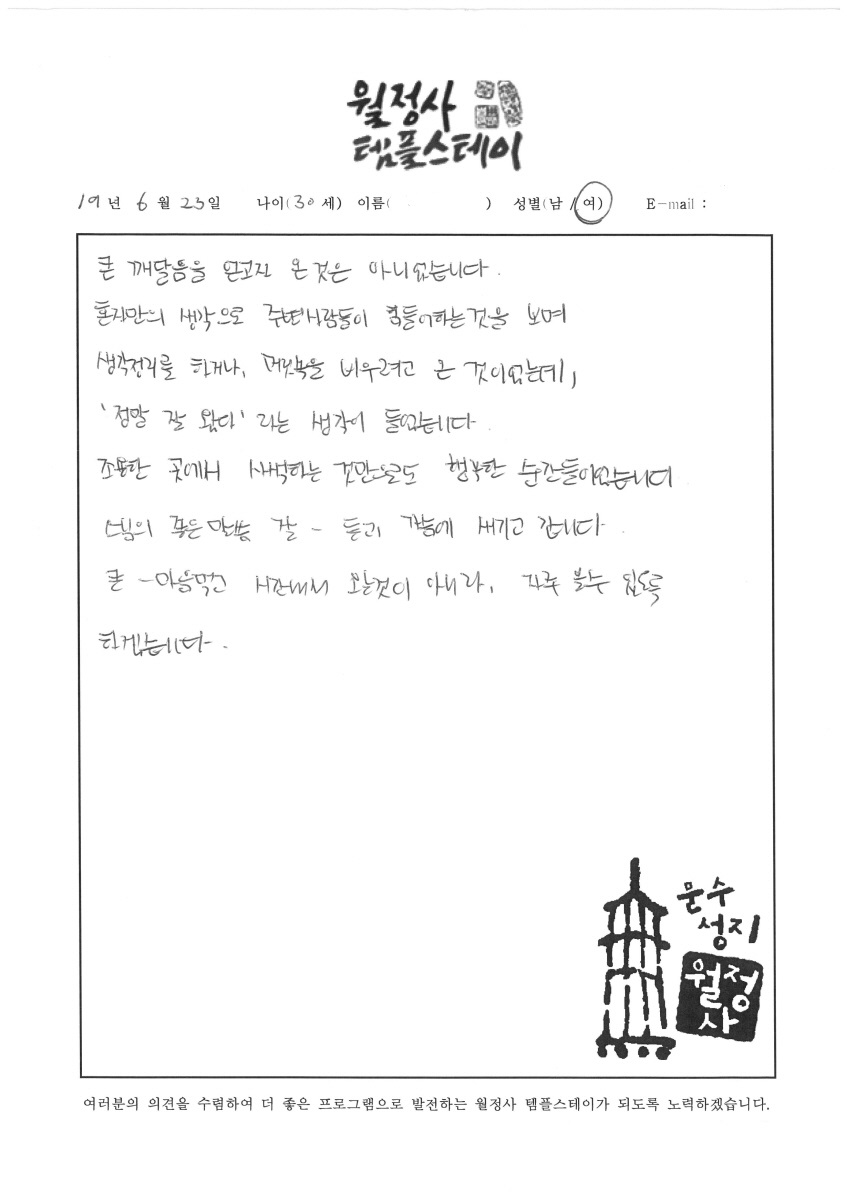 월정사
템플스테이
19년 6월 23일 나이(30세) 이름( ) 성별(남/여) E-mail :
큰 깨달음을 얻고자 온 것은 아니었습니다.
혼자만의 생각으로 주변사람들이 힘들어하는것을 보며
생각정리를 하거나, 머릿속을 비우려고 온 것이었는데,
'정말 잘 왔다' 라는 생각이 들었습니다.
조용한 곳에서 사색하는 것만으로도 행복한 순간들이었습니다
스님의 좋은말씀 잘 - 듣고 가슴에 새기고 갑니다.
큰 - 마음먹고 시간내서 오는것이 아니라, 자주 올수 있도록
하겠습니다.
문수
성지
월정
사
여러분의 의견을 수렴하여 더 좋은 프로그램으로 발전하는 월정사 템플스테이가 되도록 노력하겠습니다.